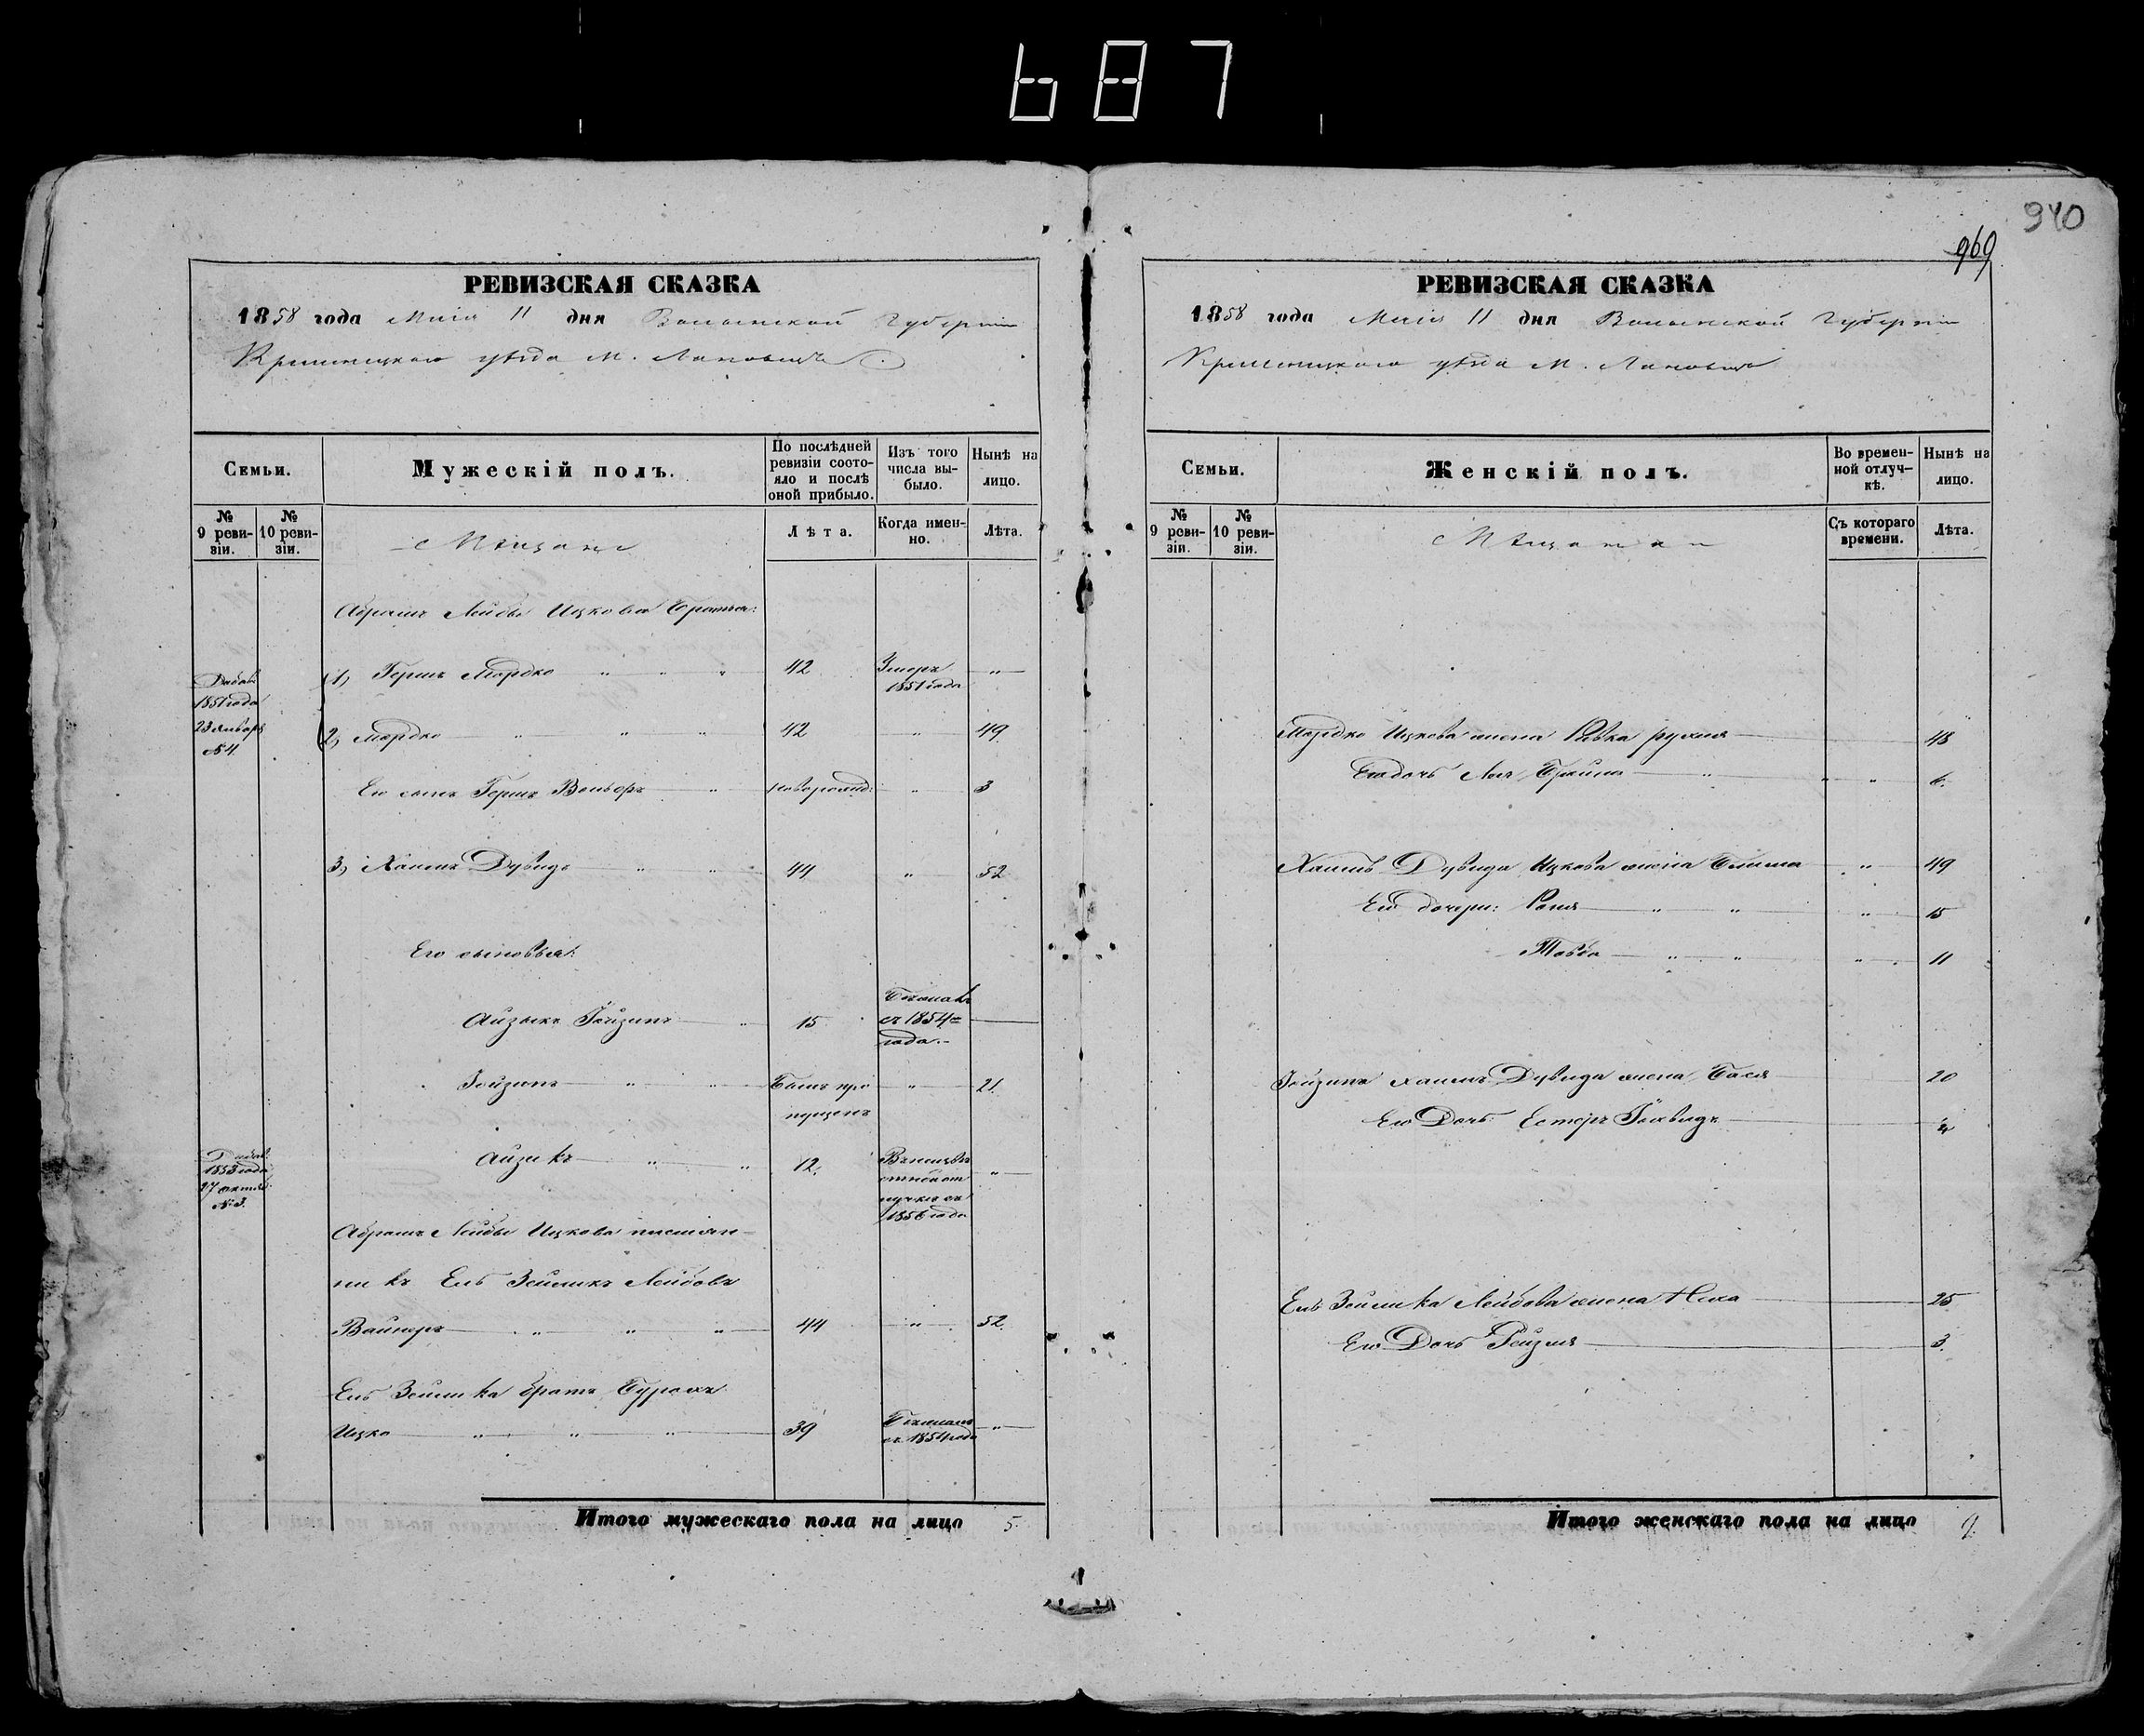 687
940
969
РЕВИЗСКАЯ СКАЗКА
1858 года Маія 11 дня Волынской Губерніи
Кременецкаго уѣзда М. Лановецъ
Семьи.
Мужескій полъ.
По послѣдней ревизіи состояло и послѣ оной прибыло.
Изъ того числа выбыло.
Нынѣ на лицо.
№ 9 ревизіи.
№ 10 ревизіи.
Мѣщане
Лѣта.
Когда именно.
Лѣта.
Абрамъ Лейбы Ицкова Братья:
1) Гершъ Мордко 42 Умеръ 1851 года
1851 года
23 январ
№ 4
2) Мордко 42 49
Его сынъ Гершъ Вольфъ новорожд: 3
3) Хаимъ Дувидъ 44 52
Его сыновья:
Айзыкъ Іойзипъ 15 съ 1854 года.
Іойзипъ Былъ пропущенъ 21
Айзикъ 12 1858 года
1853 года
27 октяб:
№ 3.
Абрамъ Лейбы Ицкова племянникъ Ель Зейликъ Лейбовъ
Вайнеръ 44 52
Ель Зейлика братъ Бурахъ
Ицко 39 съ 1854 года
Итого мужескаго пола на лицо 5.
РЕВИЗСКАЯ СКАЗКА
1858 года Маія 11 дня Волынской Губерніи
Кременецкаго уѣзда М. Лановецъ
Семьи.
Женскій полъ.
Во временной отлучкѣ.
Нынѣ на лицо.
№ 9 ревизіи.
№ 10 ревизіи.
Мѣщанки
Съ котораго времени.
Лѣта.
Мордко Ицкова жена Ривка рухля 48
Его дочь Лея Брайна 6.
Хаимъ Дувида Ицкова жена Блима 49
Его дочери: Раня 15
Товба 11
Іойзипъ Хаимъ Дувида жена Бася 20
Его Дочь Естеръ
Ель Зейлика Лейбова жена Неха 25
Его Дочь Рейзля 3.
Итого женскаго пола на лицо 9.